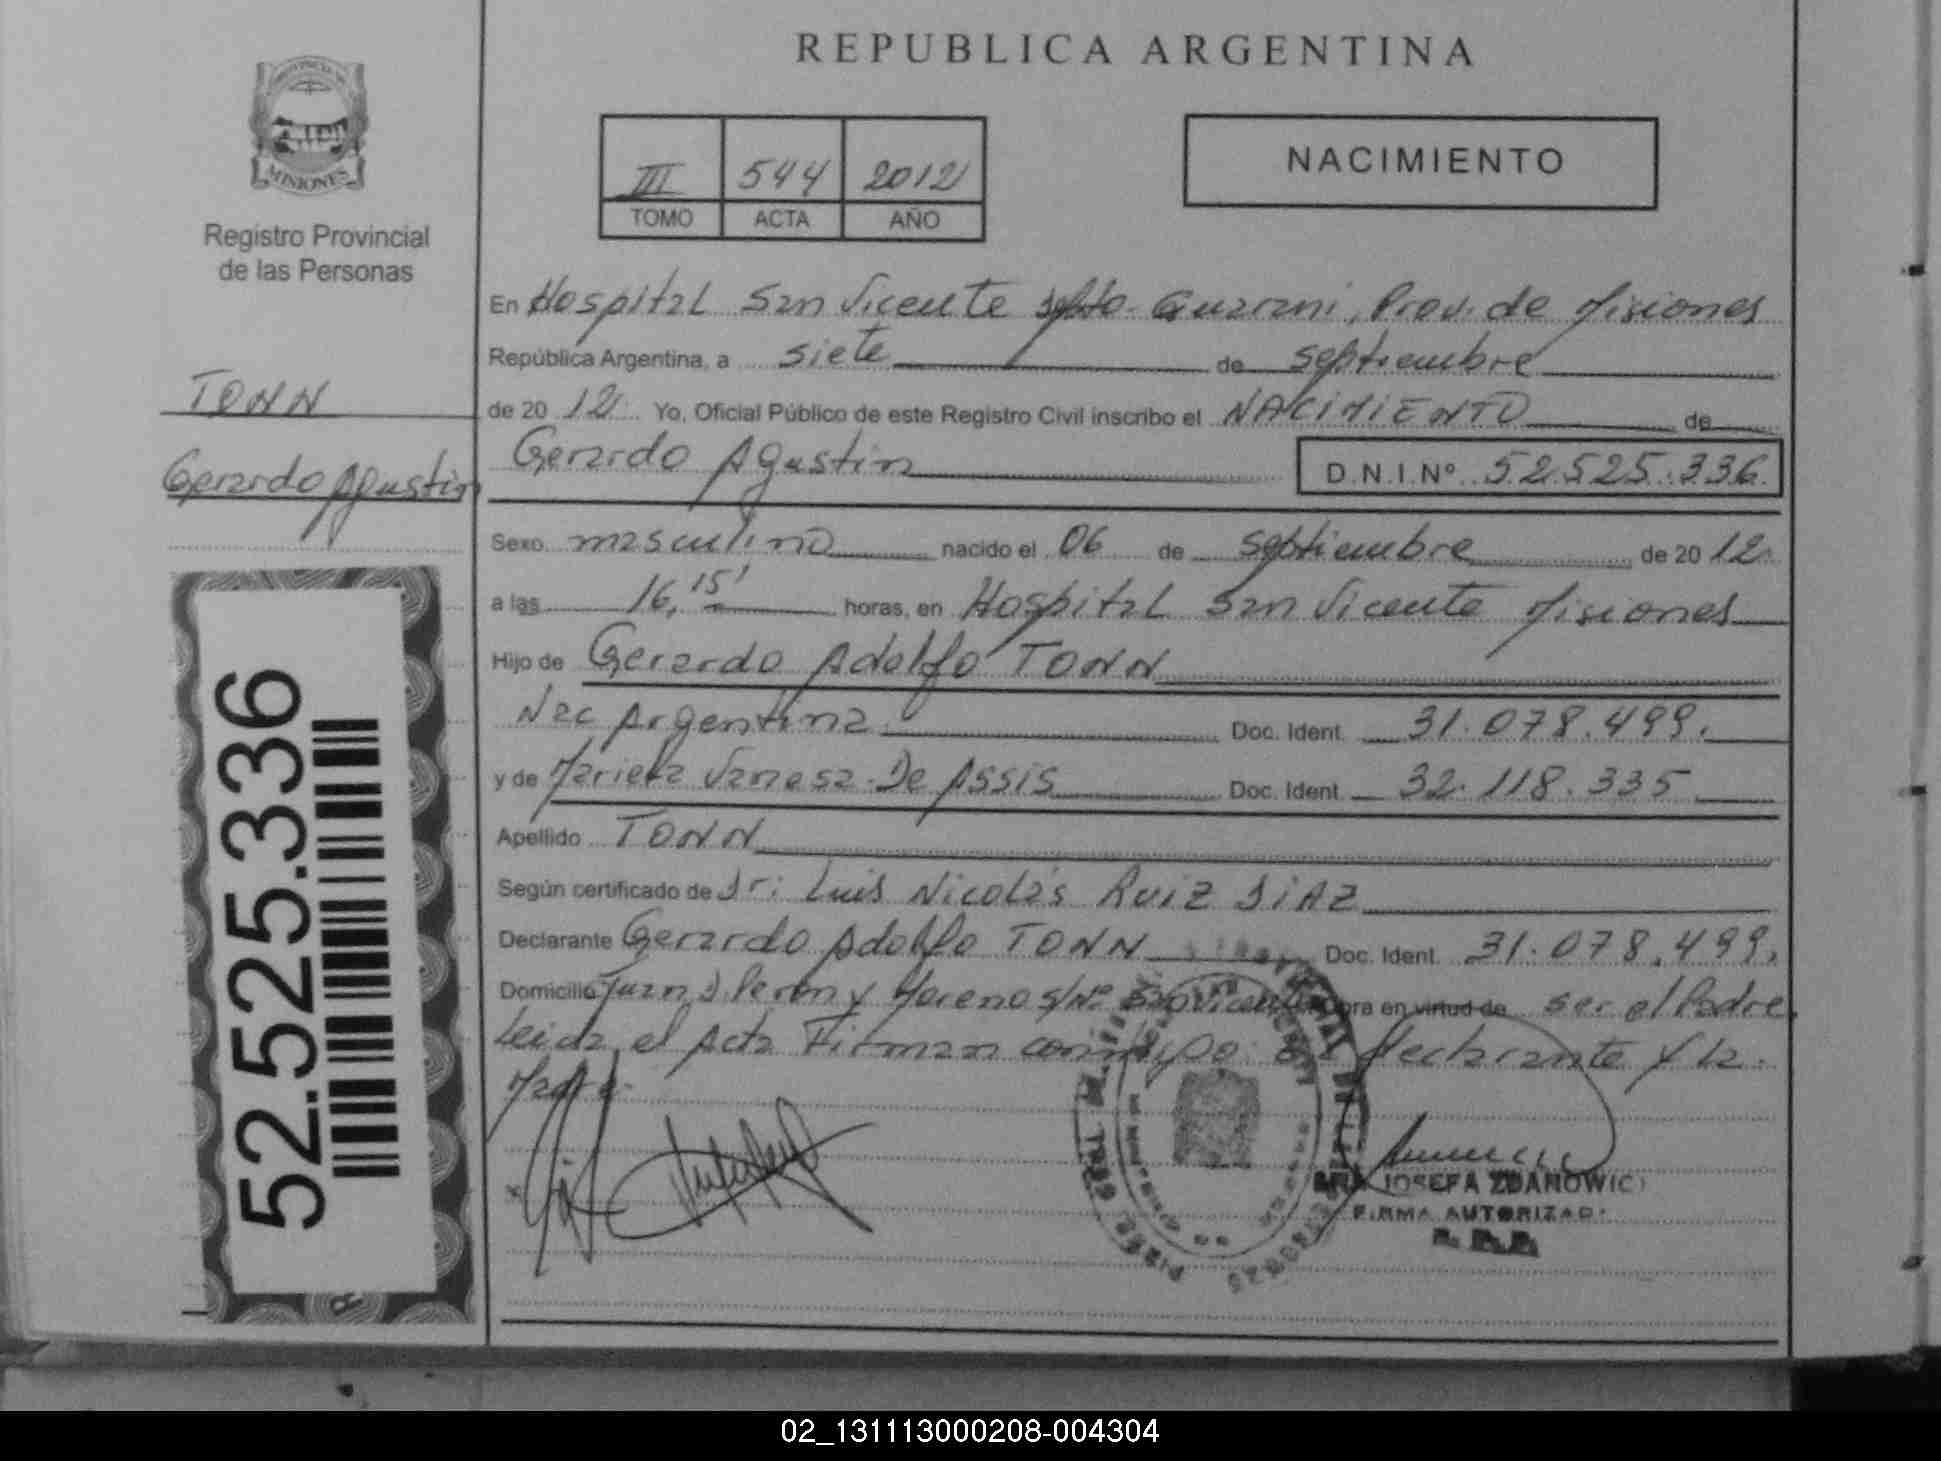 REPUBLICA ARGENTINA
PROVINCIA DE
MISIONES
Registro Provincial
de las Personas
III 544 2012
TOMO ACTA AÑO
NACIMIENTO
En Hospital San Vicente Dpto. Guarani, Prov. de Misiones
República Argentina, a siete de septiembre
de 20 12 Yo, Oficial Público de este Registro Civil inscribo el NACIMIENTO de
Gerardo Agustin D.N.I.Nº 52.525.336
TONN
Gerardo Agustin
Sexo masculino nacido el 06 de septiembre de 20 12
a las 16,15' horas, en Hospital San Vicente Misiones
Hijo de Gerardo Adolfo TONN
Nac Argentina Doc. Ident. 31.078.499.
y de Mariela Vanesa De Assis Doc. Ident. 32.118.335
Apellido TONN
Según certificado de Dr: Luis Nicolás Ruiz DiAZ
Declarante Gerardo Adolfo TONN Doc. Ident. 31.078.499,
Domicilio Juan D. Peron y Moreno S/Nº Sn Vicente Obra en virtud de ser el Padre
Leida el Acta Firman conmigo el declarante y la
Madre.
52.525.336
JOSEFA ZDANOWICZ
FIRMA AUTORIZAD
02_131113000208-004304